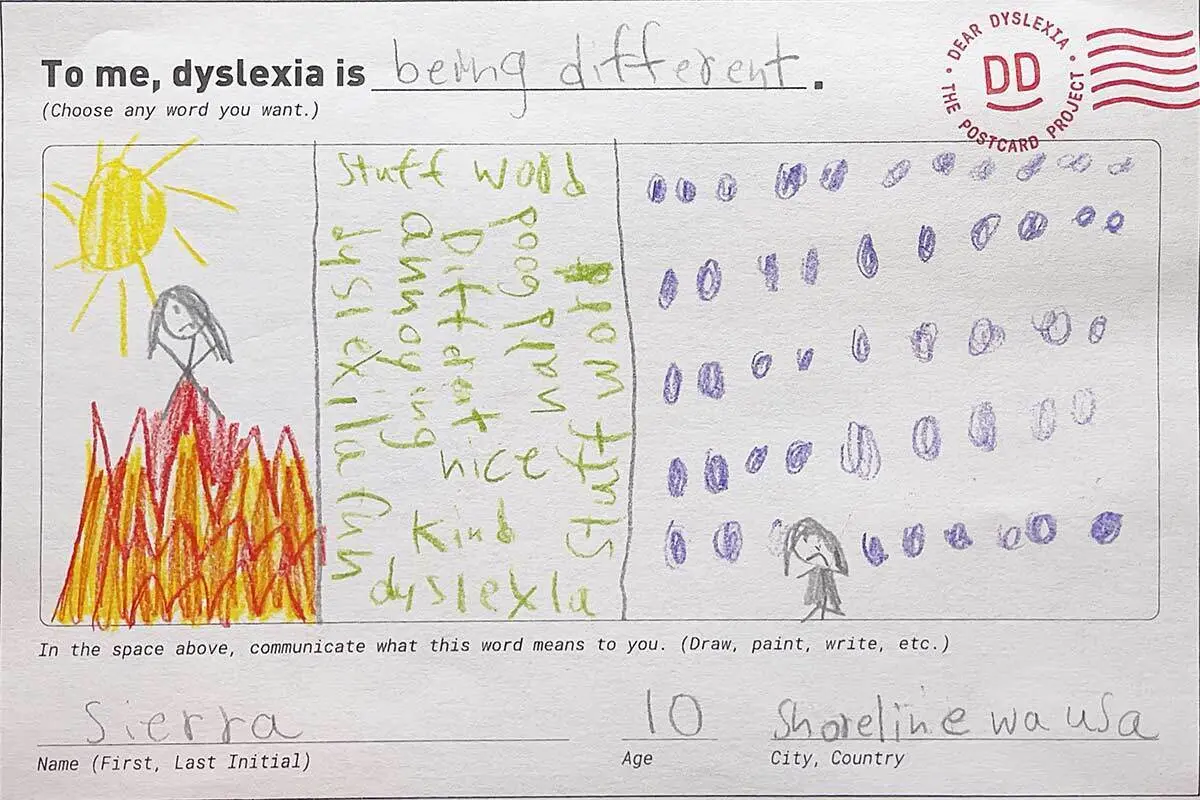 To me, dyslexia is being different.
(Choose any word you want.)
DEAR DYSLEXIA
THE POSTCARD PROJECT
DD
Stuff word
dyslexia
fun
annoying
Diffrent
poog
plan
word
Stuff
nice
kind
dyslexia
In the space above, communicate what this word means to you. (Draw, paint, write, etc.)
Sierra
10
Shoreline wa usa
Name (First, Last Initial)
Age
City, Country